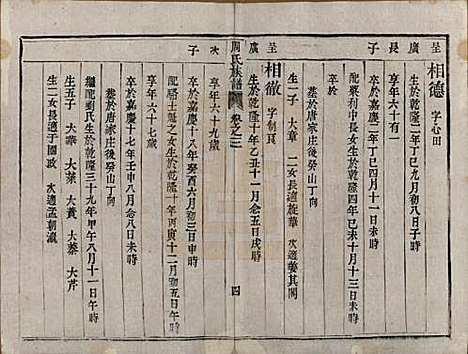 呈廣長子
相德 字心田
生於乾隆二年丁巳九月初八日子時
卒於嘉慶二年丁巳四月十一日未時
享年六十有一
配粟利中長女生於乾隆四年己未十月十三日未時
墓於唐家庄後癸山丁向
生一子 大章 二女長適旋華 次適姜其閣
呈廣次子
相徽 字制長
生於乾隆十年乙丑十一月念五日戌時
卒於嘉慶十八年癸酉六月初三日申時
享年六十九歲
周氏族譜 卷之三 四
配騎士 女生於乾隆十年丙寅十二月初五日午時
卒於嘉慶十七年壬申八月念八日未時
享年六十七歲
墓於唐家庄後癸山丁向
繼配劉氏生於乾隆三十九年甲午八月十一日午時
生五子 大 大菜 大蕡 大蓁 大芹
生二女長適于國政 次適孟朝瀛